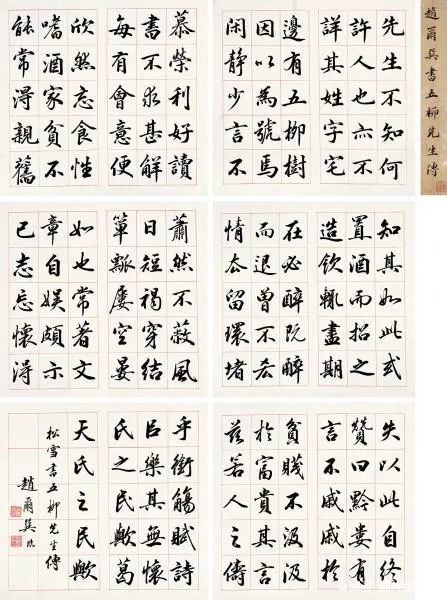 趙爾巽書五柳先生傳
先生不知何
許人也亦不
詳其姓字宅
邊有五柳樹
因以為號焉
閑靜少言不
慕榮利好讀
書不求甚解
每有會意便
欣然忘食性
嗜酒家貧不
能常淂親舊
知其如此或
置酒而招之
造飲輒盡期
在必醉既醉
而退曾不吝
情去留環堵
蕭然不蔽風
日短褐穿結
簞瓢屢空晏
如也常著文
章自娛頗示
己志忘懷淂
失以此自終
贊曰黔婁有
言不戚戚於
貧賤不汲汲
於富貴其言
茲若人之儔
乎銜觴賦詩
㠯樂其無懷
氏之民歟葛
天氏之民歟
松雪書五柳先生傳
趙爾巽臨